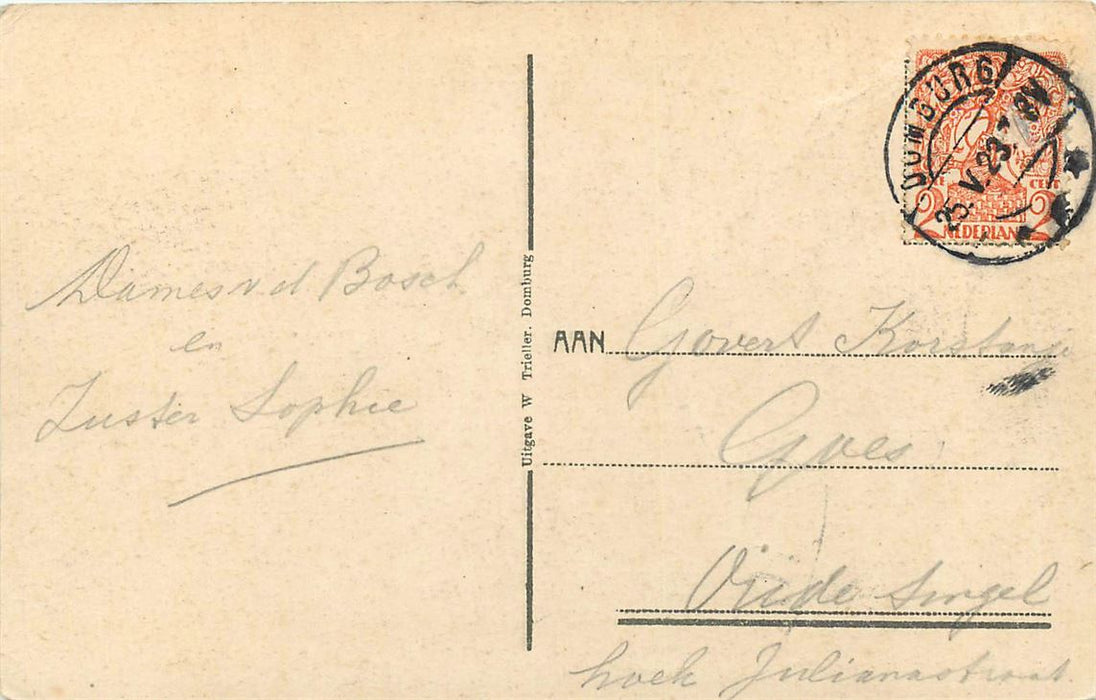 Dames v d Bosch
en
Zuster Sophie
Uitgave W Trieller. Domburg
DOMBURG
25.V.23.7
CENT
2 2
NEDERLAND
AAN Govert Korstanje
Goes
Oude Singel
hoek Julianastraat